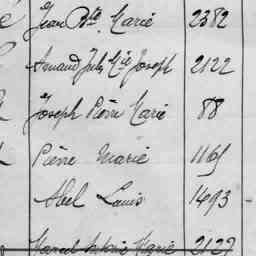 Jean Bte Marie 2382
Armand Jules Mie Joseph 2122
Joseph Pierre Marie 88
Pierre Marie 1165
Abel Louis 1493
Marcel Marie 2127